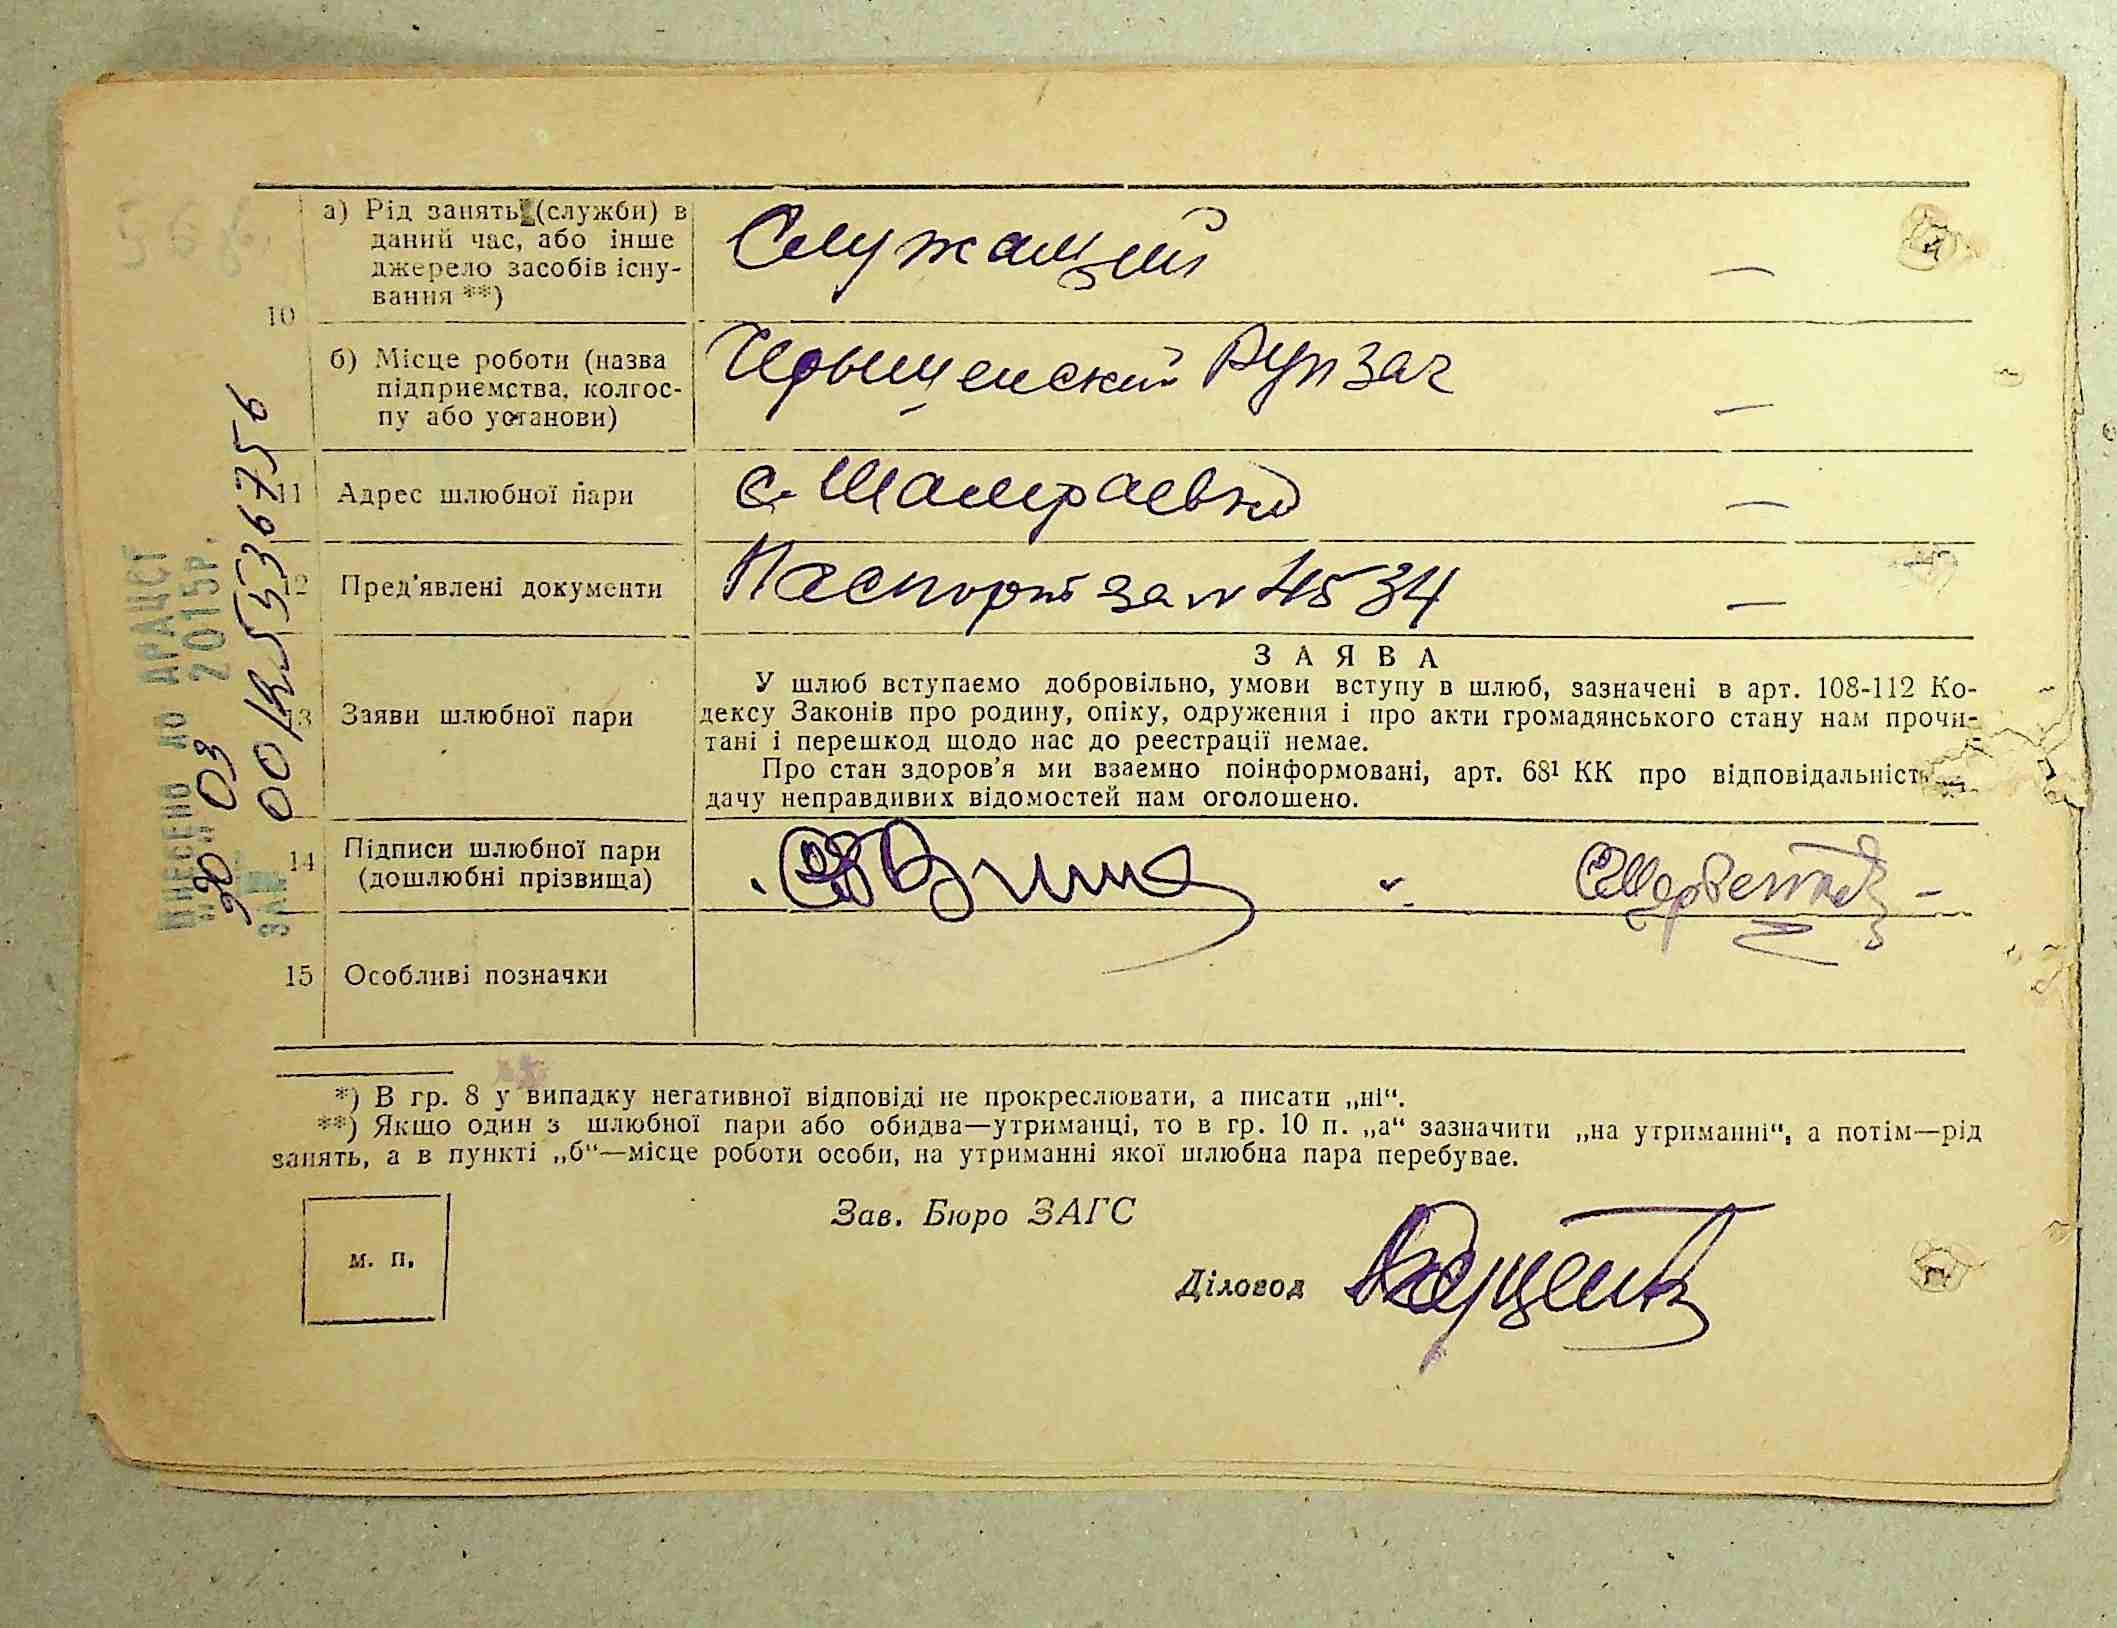 а) Рід занять (служби) в
даний час, або інше
джерело засобів існу-
вання **)
Служащий —
10
б) Місце роботи (назва
підприємства, колгос-
пу або установи)
—
11 Адрес шлюбної пари
с. Шамраевка —
12 Пред'явлені документи
Паспорт за № 4534 —
ЗАЯВА
13 Заяви шлюбної пари
У шлюб вступаємо добровільно, умови вступу в шлюб, зазначені в арт. 108-112 Ко-
дексу Законів про родину, опіку, одруження і про акти громадянського стану нам прочи-
тані і перешкод щодо нас до реєстрації немає.
Про стан здоров'я ми взаємно поінформовані, арт. 68¹ КК про відповідальність
дачу неправдивих відомостей нам оголошено.
14 Підписи шлюбної пари
(дошлюбні прізвища)
15 Особливі позначки
*) В гр. 8 у випадку негативної відповіді не прокреслювати, а писати „ні“.
**) Якщо один з шлюбної пари або обидва—утриманці, то в гр. 10 п. „а“ зазначити „на утриманні“, а потім—рід
занять, а в пункті „б“—місце роботи особи, на утриманні якої шлюбна пара перебуває.
Зав. Бюро ЗАГС
м. п.
Діловод
ВНЕСЕНО ДО ДРАЦСГ
30 03 2015р.
ЗА №
00155336756